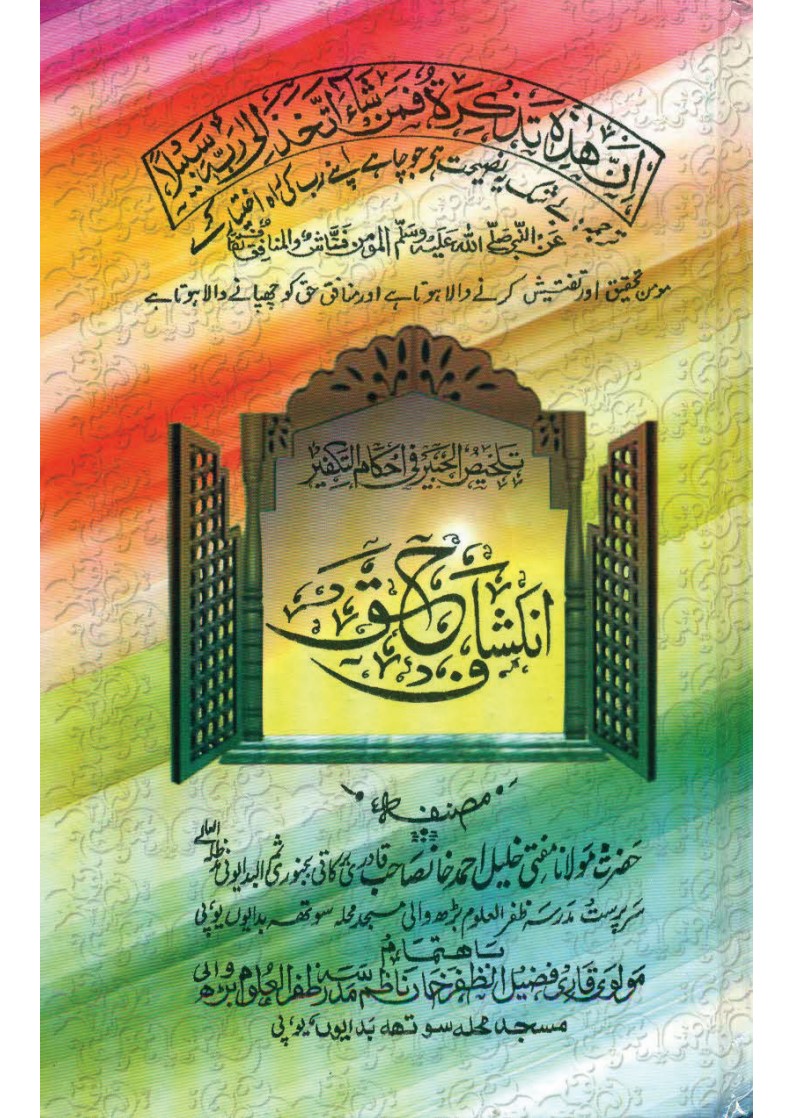 اِنَّ هٰذِهٖ تَذْكِرَةٌ فَمَنْ شَآءَ اتَّخَذَ اِلٰى رَبِّهٖ سَبِيْلًا
ترجمہ: بے شک یہ نصیحت ہے جو چاہے اپنے رب کی راہ اختیار کرے
عَنِ النَّبِیِّ صَلَّی اللہُ عَلَیْہِ وَسَلَّم المؤمن فتّاش والمنافق
مومن تحقیق اور تفتیش کرنے والا ہوتا ہے اور منافق حق کو چھپانے والا ہوتا ہے
تلخیص الحبیر فی احکام التکفیر
انکشاف حق
مصنفہ
حضرت مولانا مفتی خلیل احمد خانصاحب قادری برکاتی بجنوری ثم البدایونی مدظلہ العالی
سرپرست مدرسہ ظفر العلوم بڑھ والی مسجد محلہ سوتھہ بدایوں یو،پی
باہتمام
مولوی قاری فضیل الظفر خان ناظم مدرسہ ظفر العلوم بڑھ والی
مسجد محلہ سوتھہ بدایوں، یو،پی